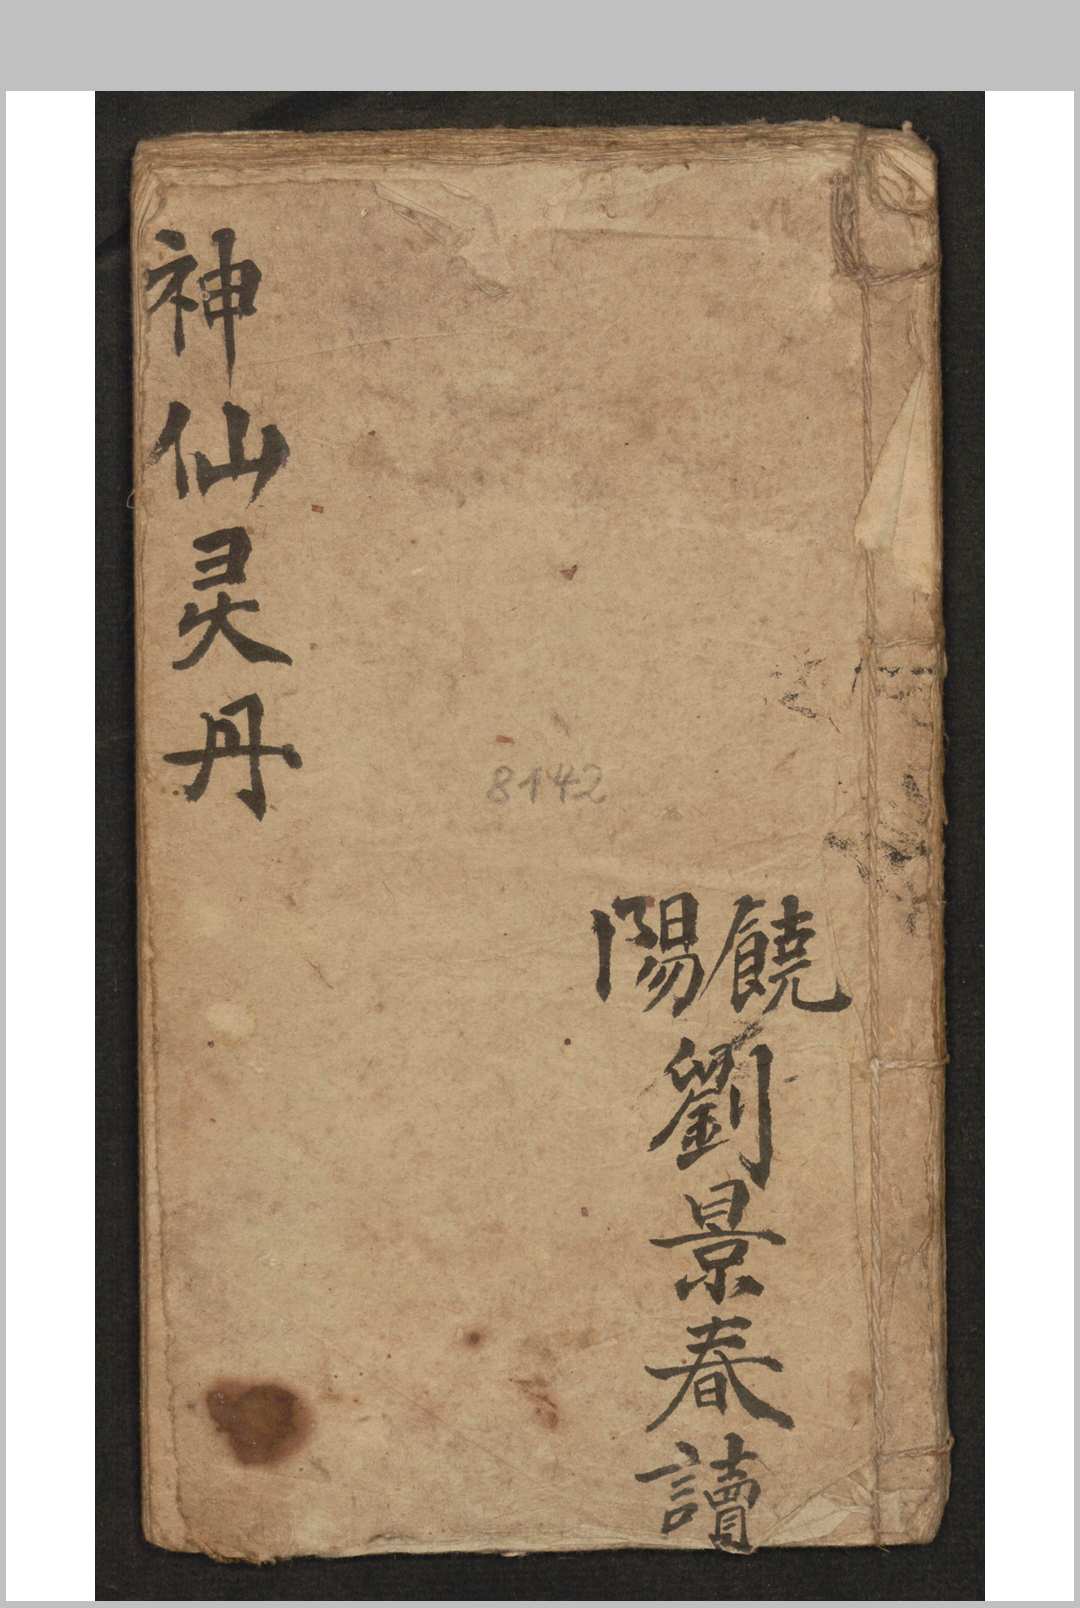 神仙灵丹
8142
饒陽
劉景春讀